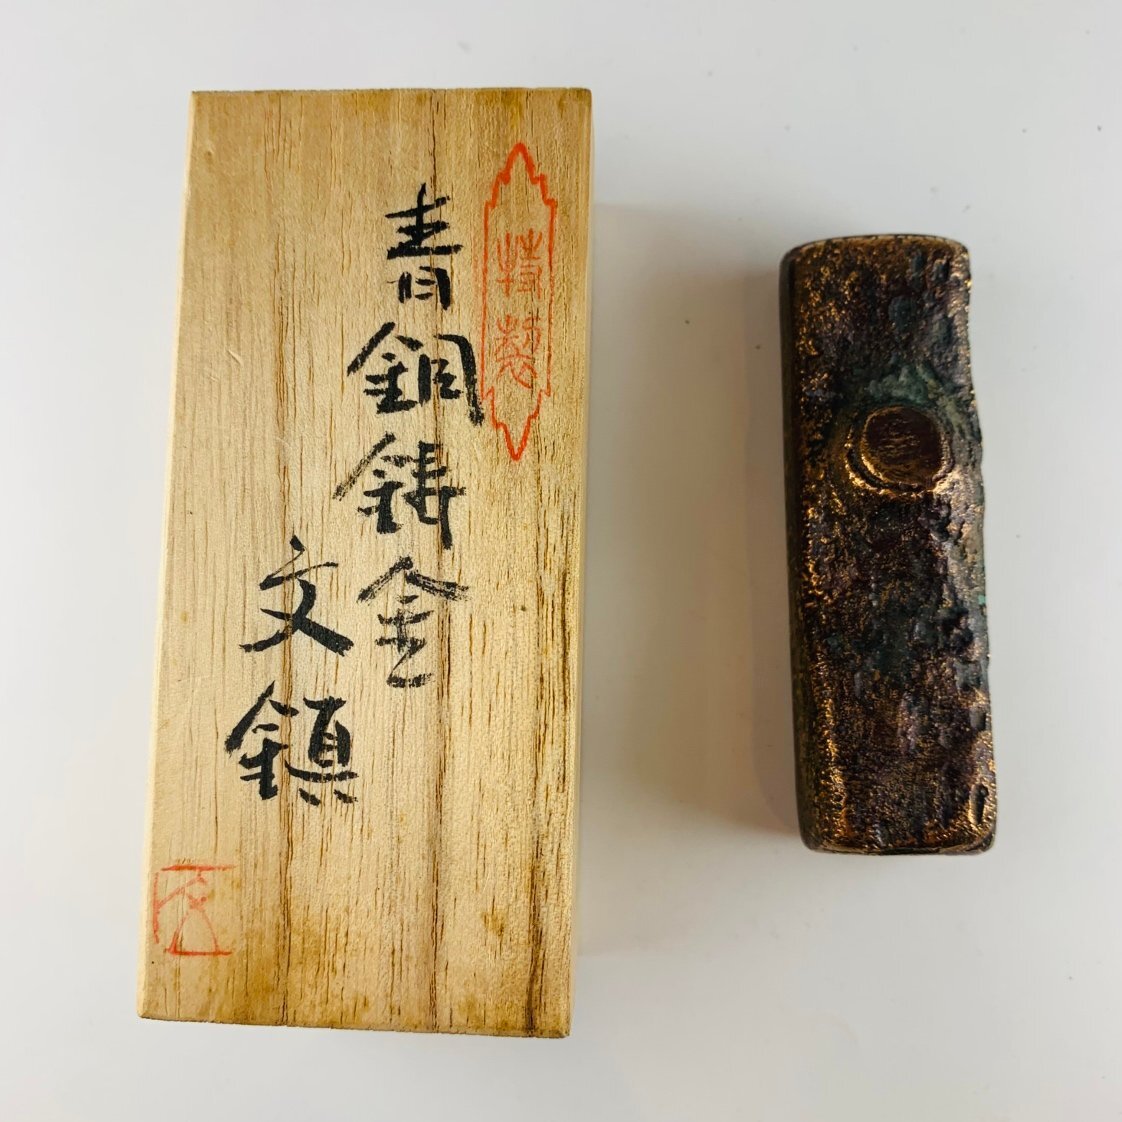 特製
青銅鋳金
文鎮